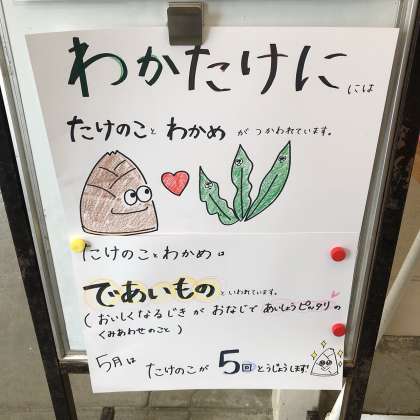 わかたけに には
たけのこと わかめ が つかわれています。
たけのことわかめは
であいもの といわれています。
( おいしくなるじきが おなじで あいしょうピッタリの
くみあわせのこと )
5月は たけのこが 5回とうじょうします!